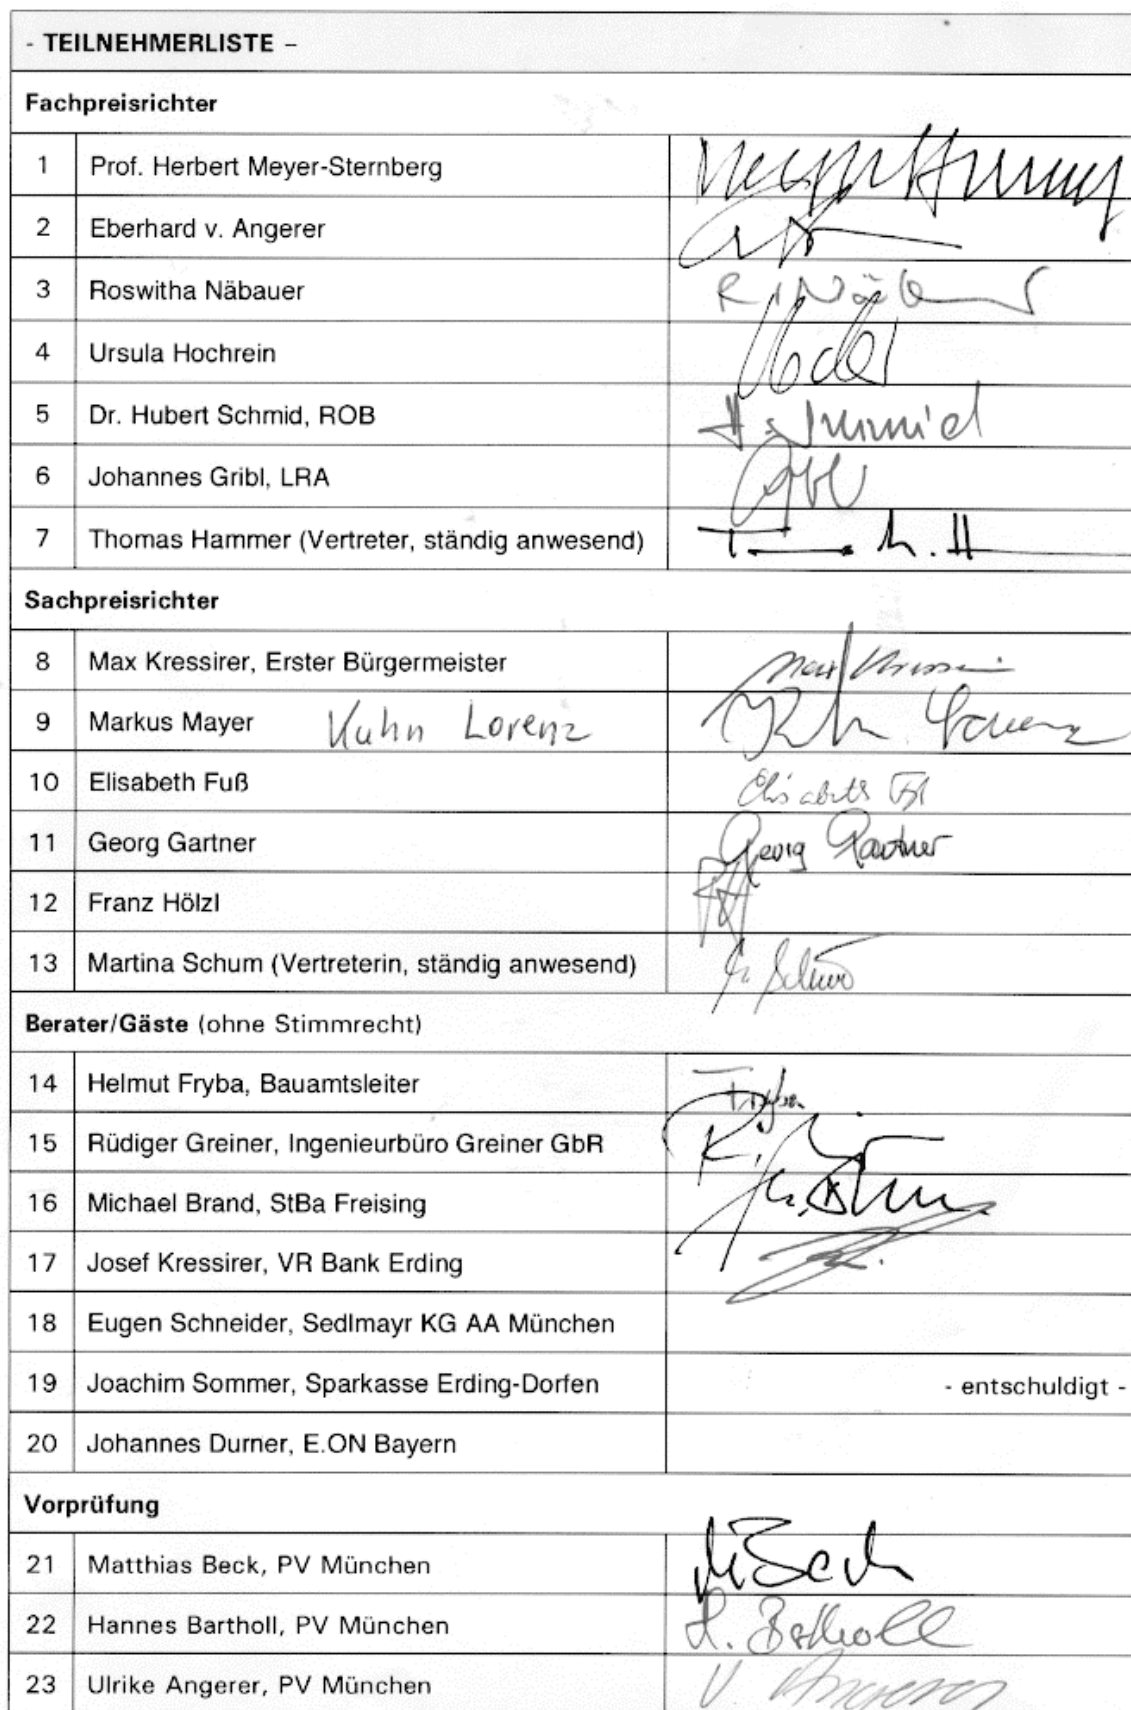 - TEILNEHMERLISTE –
Fachpreisrichter
1 Prof. Herbert Meyer-Sternberg
2 Eberhard v. Angerer
3 Roswitha Näbauer R. Näb
4 Ursula Hochrein
5 Dr. Hubert Schmid, ROB H. Schmid
6 Johannes Gribl, LRA
7 Thomas Hammer (Vertreter, ständig anwesend)
Sachpreisrichter
8 Max Kressirer, Erster Bürgermeister Max
9 Markus Mayer Kuhn Lorenz Lorenz
10 Elisabeth Fuß Elisabeth
11 Georg Gartner Georg Gartner
12 Franz Hölzl
13 Martina Schum (Vertreterin, ständig anwesend)
Berater/Gäste (ohne Stimmrecht)
14 Helmut Fryba, Bauamtsleiter Fryba
15 Rüdiger Greiner, Ingenieurbüro Greiner GbR
16 Michael Brand, StBa Freising
17 Josef Kressirer, VR Bank Erding
18 Eugen Schneider, Sedlmayr KG AA München
19 Joachim Sommer, Sparkasse Erding-Dorfen - entschuldigt -
20 Johannes Durner, E.ON Bayern
Vorprüfung
21 Matthias Beck, PV München M Beck
22 Hannes Bartholl, PV München H. Bartholl
23 Ulrike Angerer, PV München U Angerer